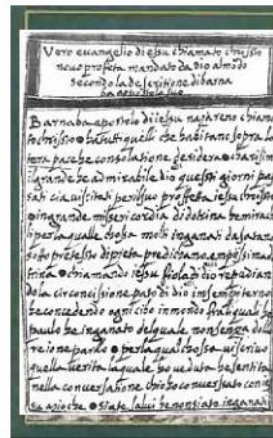 Vero euangelio di essu chiamato chrissto
nouo profeta mandato da dio al mōdo
secondo la descritione di barna
ba apostolo suo
Barnaba apostolo di iessu nazareno chiama
to chrissto ha tutti quelli che habitano sopra la
terra pace he consolatione dessidera carissimi
il grande he admirabile dio questi giorni pas
sati cia uissitati per il suo profeta iesu chrissto
in grande misericordia di dotrina he miracu
li per la qualle chossa molti inganati da satana
sotto pretessto di pieta predicano empissima do
trina chiamando iesu fiolo di dio repudian
do la circoncisione pato di dio in sempiterno
he concedendo ogni cibo inmondo fra i quali he
paulo he inganato del quale non senza dollo
re io ne parlo per la qual chossa ui scriuo
quella uerita la quale ho ueduta he sentita
nella conuersatione che io ho conuersato con ie
siate salui he non siate inganati